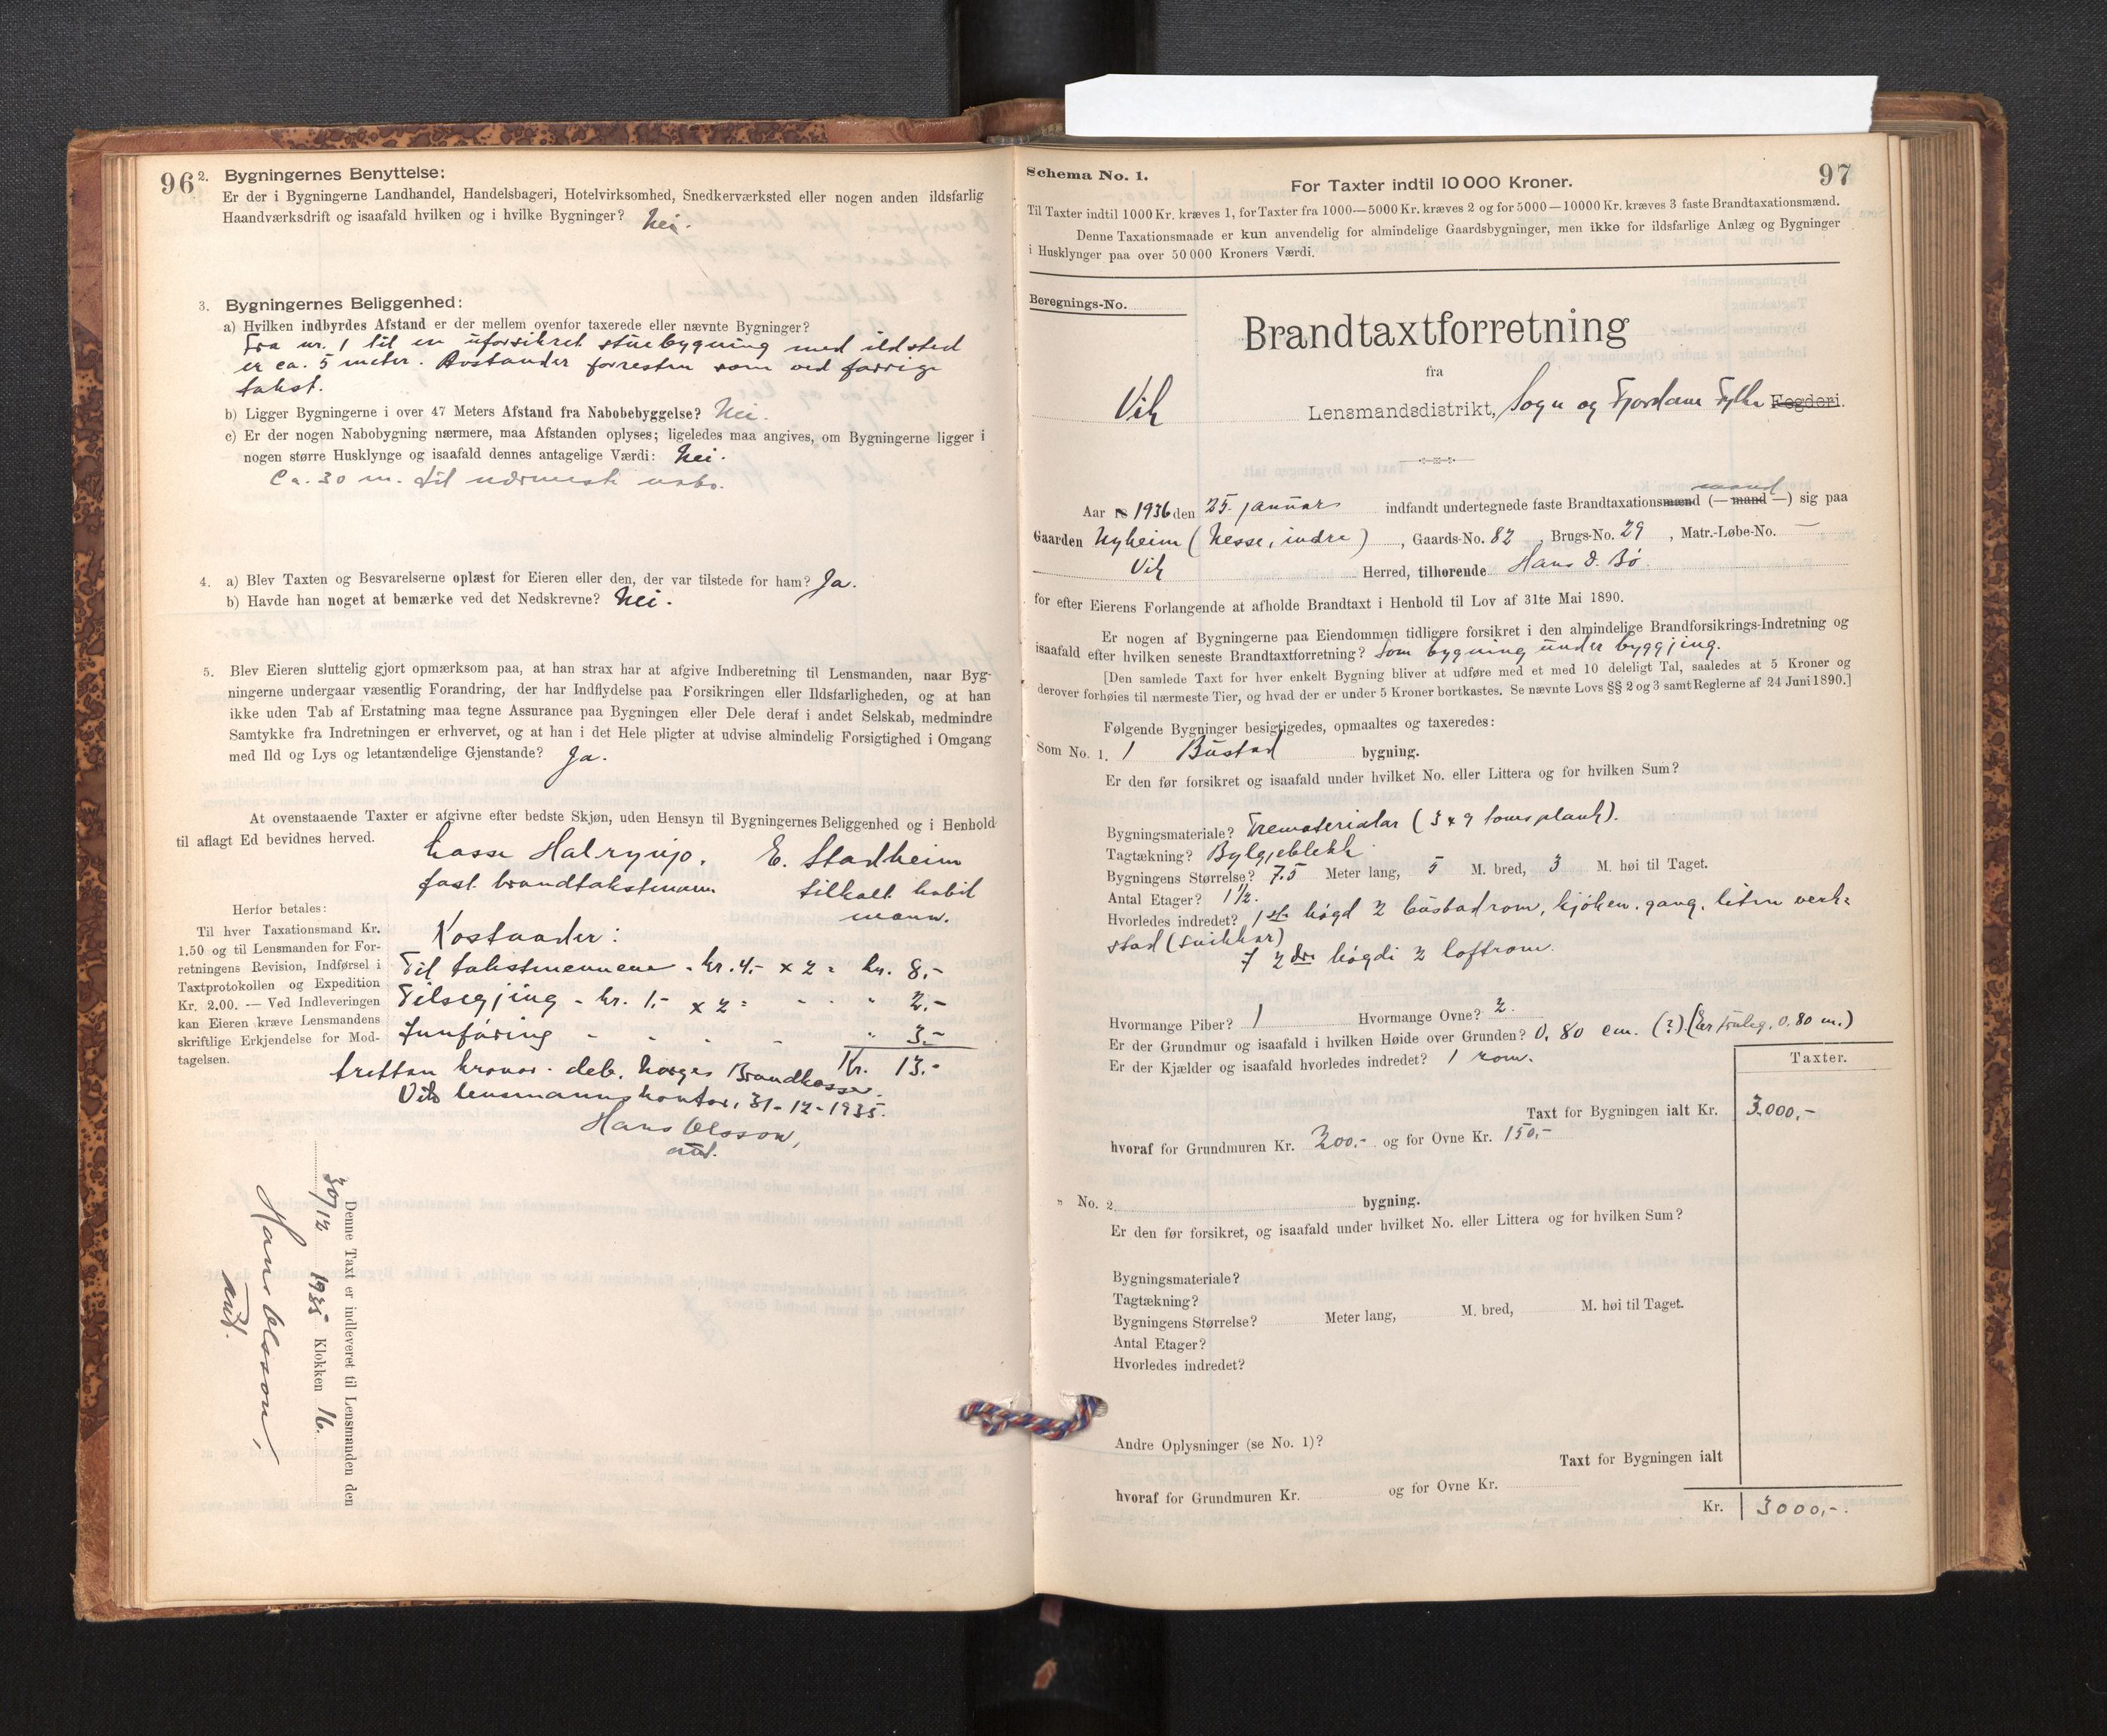 96
2. Bygningernes Benyttelse:
Er der i Bygningerne Landhandel, Handelsbageri, Hotelvirksomhed, Snedkerværksted eller nogen anden ildsfarlig
Haandværksdrift og isaafald hvilken og i hvilke Bygninger? Nei.
3. Bygningernes Beliggenhed:
a) Hvilken indbyrdes Afstand er der mellem ovenfor taxerede eller nævnte Bygninger?
Fra nr. 1 til en uforsikret stuebygning med ildsted
er ca. 5 meter. Avstander forresten som ved forrige
takst.
b) Ligger Bygningerne i over 47 Meters Afstand fra Nabobebyggelse? Nei.
c) Er der nogen Nabobygning nærmere, maa Afstanden oplyses; ligeledes maa angives, om Bygningerne ligger i
nogen større Husklynge og isaafald dennes antagelige Værdi: Nei.
Ca. 30 m. til nærmeste nabo.
4. a) Blev Taxten og Besvarelserne oplæst for Eieren eller den, der var tilstede for ham? Ja.
b) Havde han noget at bemærke ved det Nedskrevne? Nei.
5. Blev Eieren sluttelig gjort opmærksom paa, at han strax har at afgive Indberetning til Lensmanden, naar Byg-
ningerne undergaar væsentlig Forandring, der har Indflydelse paa Forsikringen eller Ildsfarligheden, og at han
ikke uden Tab af Erstatning maa tegne Assurance paa Bygningen eller Dele deraf i andet Selskab, medmindre
Samtykke fra Indretningen er erhvervet, og at han i det Hele pligter at udvise almindelig Forsigtighed i Omgang
med Ild og Lys og letantændelige Gjenstande? Ja.
At ovenstaaende Taxter er afgivne efter bedste Skjøn, uden Hensyn til Bygningernes Beliggenhed og i Henhold
til aflagt Ed bevidnes herved.
Lasse E. Stadheim
fast brandtakstmann tilkalt habil
mann.
Herfor betales:
Til hver Taxationsmand Kr.
1.50 og til Lensmanden for For-
retningens Revision, Indførsel i
Taxtprotokollen og Expedition
Kr. 2.00. — Ved Indleveringen
kan Eieren kræve Lensmandens
skriftlige Erkjendelse for Mod-
tagelsen.
Kostnader:
Til takstmennene - kr. 4,- x 2 = kr. 8,-
Tilsegjing - kr. 1,- x 2 = - - " 2,-
Innføring - - - - " 3,-
Kr. 13,-
trettan kronor - deb. Norges Brandkasse.
Vik lensmannskontor, 31-12-1935.
Hans Olsson,
aut.
Denne Taxt er indleveret til Lensmanden den
30/12 1935 Klokken 16.
Hans Olsson,
aut.
97
Schema No. 1.
For Taxter indtil 10 000 Kroner.
Til Taxter indtil 1000 Kr. kræves 1, for Taxter fra 1000—5000 Kr. kræves 2 og for 5000—10000 Kr. kræves 3 faste Brandtaxationsmænd.
Denne Taxationsmaade er kun anvendelig for almindelige Gaardsbygninger, men ikke for ildsfarlige Anlæg og Bygninger
i Husklynger paa over 50 000 Kroners Værdi.
Beregnings-No.
Brandtaxtforretning
fra
Vik Lensmandsdistrikt, Sogn og Fjordane Fylke Fogderi.
mand
Aar 18 1936 den 25. januar indfandt undertegnede faste Brandtaxationsmænd (— mand —) sig paa
Gaarden Nyheim (Nesse, indre), Gaards-No. 82, Brugs-No. 29, Matr.-Løbe-No. —
Vik Herred, tilhørende Hans O. Bø
for efter Eierens Forlangende at afholde Brandtaxt i Henhold til Lov af 31te Mai 1890.
Er nogen af Bygningerne paa Eiendommen tidligere forsikret i den almindelige Brandforsikrings-Indretning og
isaafald efter hvilken seneste Brandtaxtforretning? Som bygning under byggjing.
[Den samlede Taxt for hver enkelt Bygning bliver at udføre med et med 10 deleligt Tal, saaledes at 5 Kroner og
derover forhøies til nærmeste Tier, og hvad der er under 5 Kroner bortkastes. Se nævnte Lovs §§ 2 og 3 samt Reglerne af 24 Juni 1890.]
Følgende Bygninger besigtigedes, opmaaltes og taxeredes:
Som No. 1. 1 Bustad bygning.
Er den før forsikret og isaafald under hvilket No. eller Littera og for hvilken Sum?
Bygningsmateriale? Trematerialar (3 x 9 toms plank).
Tagtækning? Bylgjeblekk
Bygningens Størrelse? 7.5 Meter lang, 5 M. bred, 3 M. høi til Taget.
Antal Etager? 1½.
Hvorledes indredet? 1ste høgd 2 bustadrom, kjøken, gang, liten verk-
stad (snikkar)
I 2dre høgdi 2 loftsrom.
Hvormange Piber? 1 Hvormange Ovne? 2.
Er der Grundmur og isaafald i hvilken Høide over Grunden? 0,80 cm. (?) (Er truleg, 0.80 m.)
Er der Kjælder og isaafald hvorledes indredet? 1 rom.
Taxter.
Taxt for Bygningen ialt Kr. 3.000,-
hvoraf for Grundmuren Kr. 200.- og for Ovne Kr. 150,-
" No. 2 bygning.
Er den før forsikret, og isaafald under hvilket No. eller Littera og for hvilken Sum?
Bygningsmateriale?
Tagtækning?
Bygningens Størrelse? Meter lang, M. bred, M. høi til Taget.
Antal Etager?
Hvorledes indredet?
Andre Oplysninger (se No. 1)?
Taxt for Bygningen ialt
hvoraf for Grundmuren Kr. og for Ovne Kr.
Kr. 3000,-